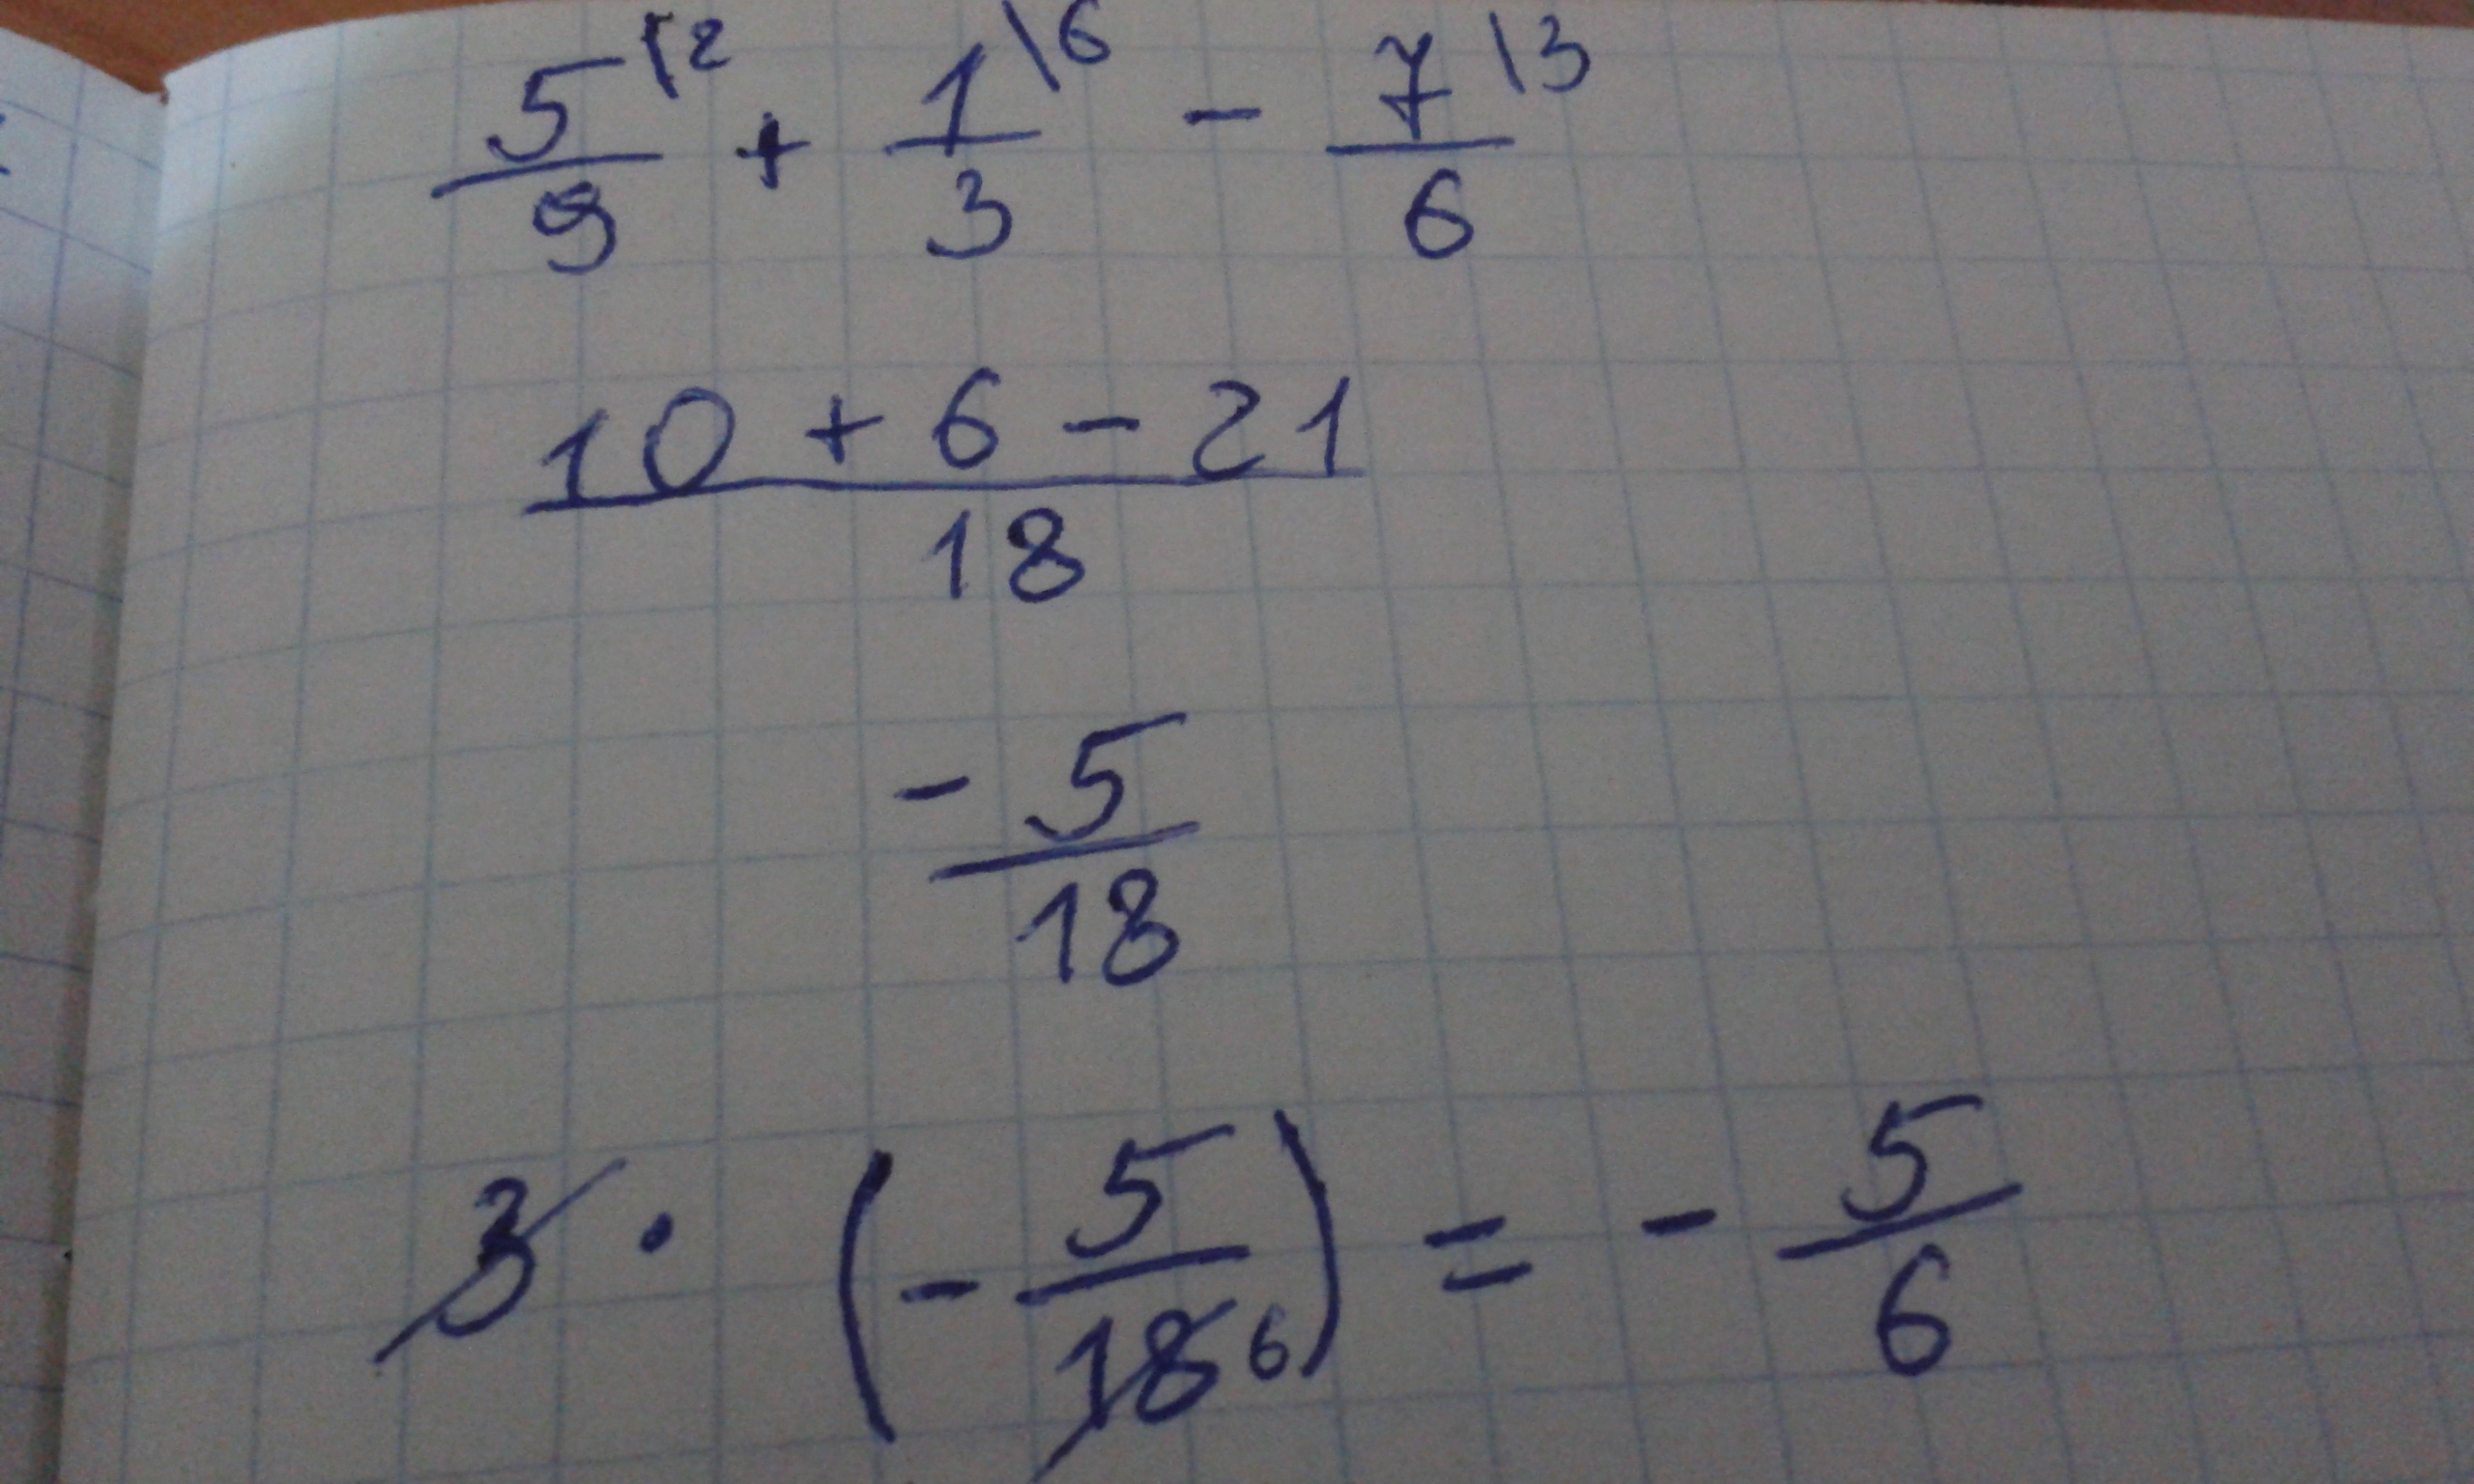 5\2 1\6 7\3
— + — - —
9 3 6
10 + 6 - 21
18
- 5
18
3 · (- 5/18 6) = - 5/6